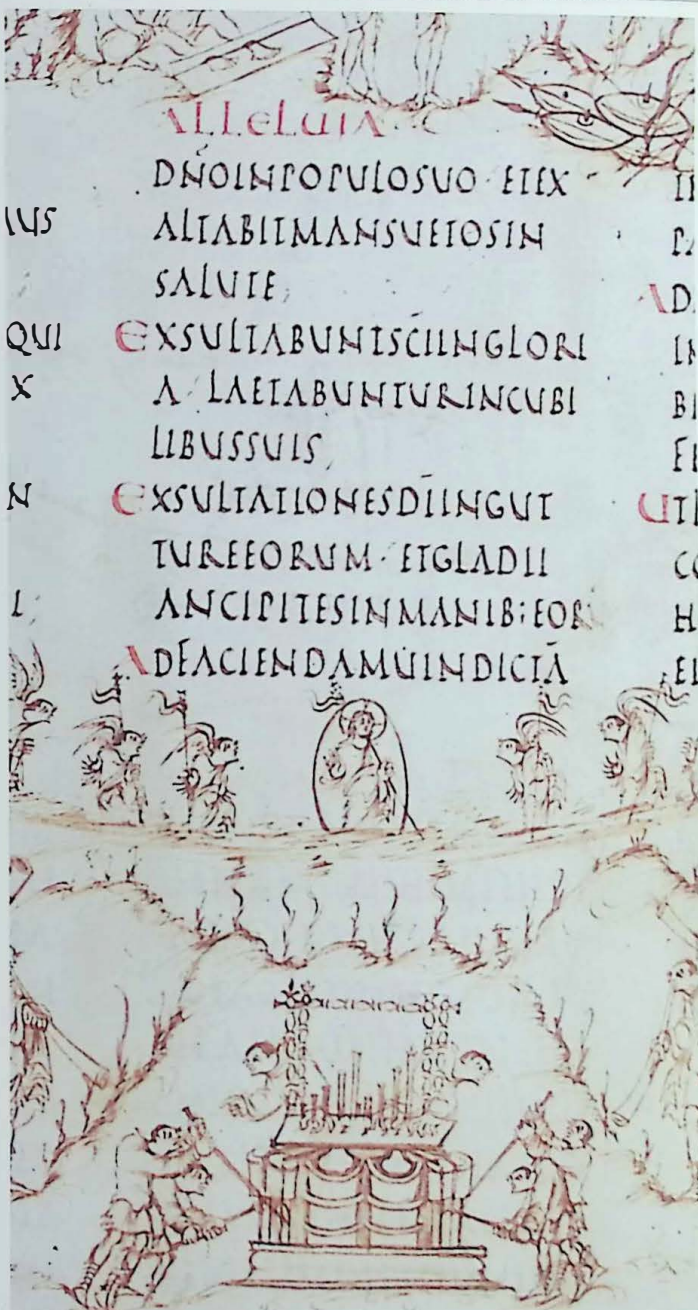 IUS
QUI
X
N
I
ALLELUIA
DN̄OINPOPULOSUO · ETEX
ALTABITMANSUETOSIN
SALUTE
EXSULTABUNTSC̄IINGLORI
A · LAETABUNTURINCUBI
LIBUSSUIS
EXSULTATIONESD̄IINGUT
TUREEORUM · ETGLADII
ANCIPITESINMANIB;EOR
ADFACIENDAMUINDICTĀ
AD
BI
UTI
CO
H